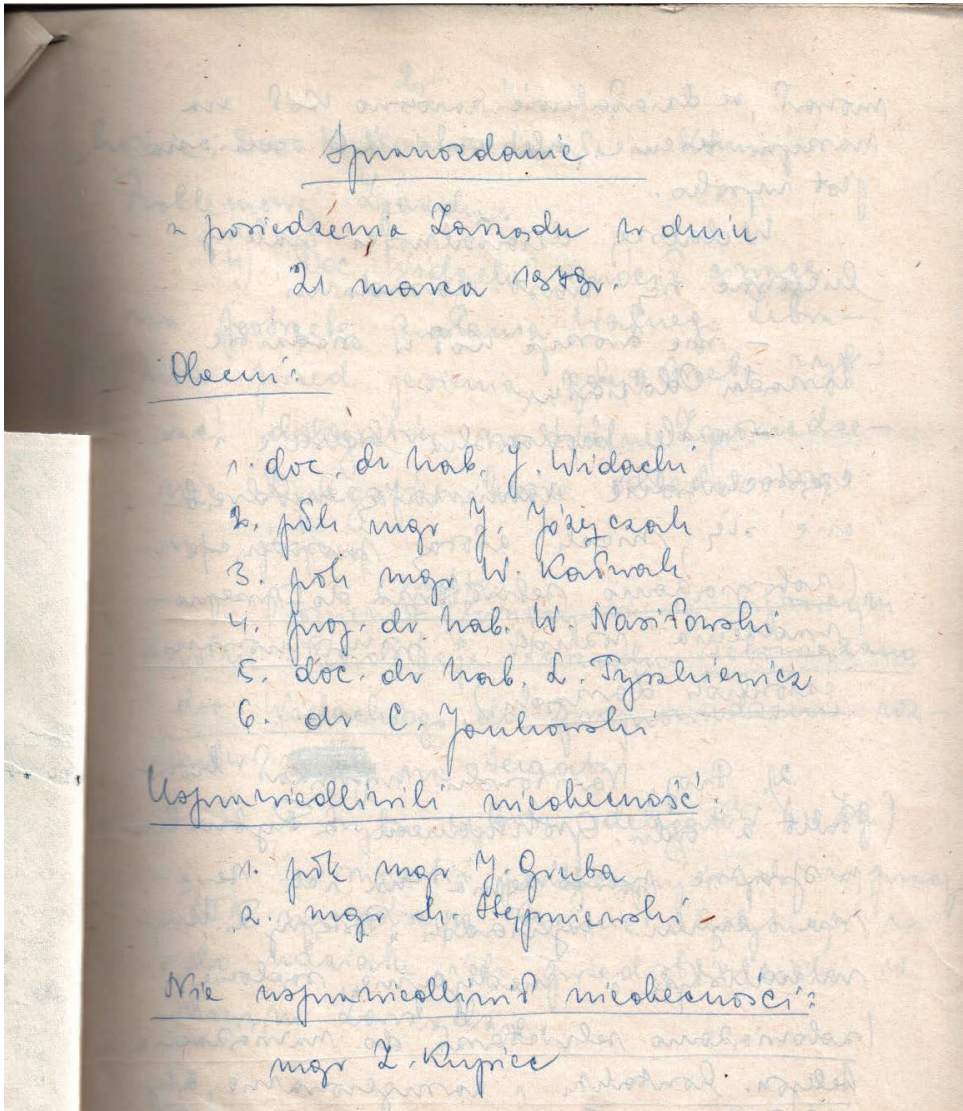 Sprawozdanie
z posiedzenia Zarządu w dniu
21 marca 1979r.
Obecni:
1. doc. dr hab. J. Widacki
2. płk mgr J. Józyczak
3. płk mgr W. Kałwak
4. prof. dr hab. W. Nasiłowski
5. doc. dr hab. L. Tyszkiewicz
6. dr C. Jankowski
Usprawiedliwili nieobecność:
1. płk mgr J. Gruba
2. mgr Stępniewski
Nie usprawiedliwił nieobecności:
mgr Z. Kupiec